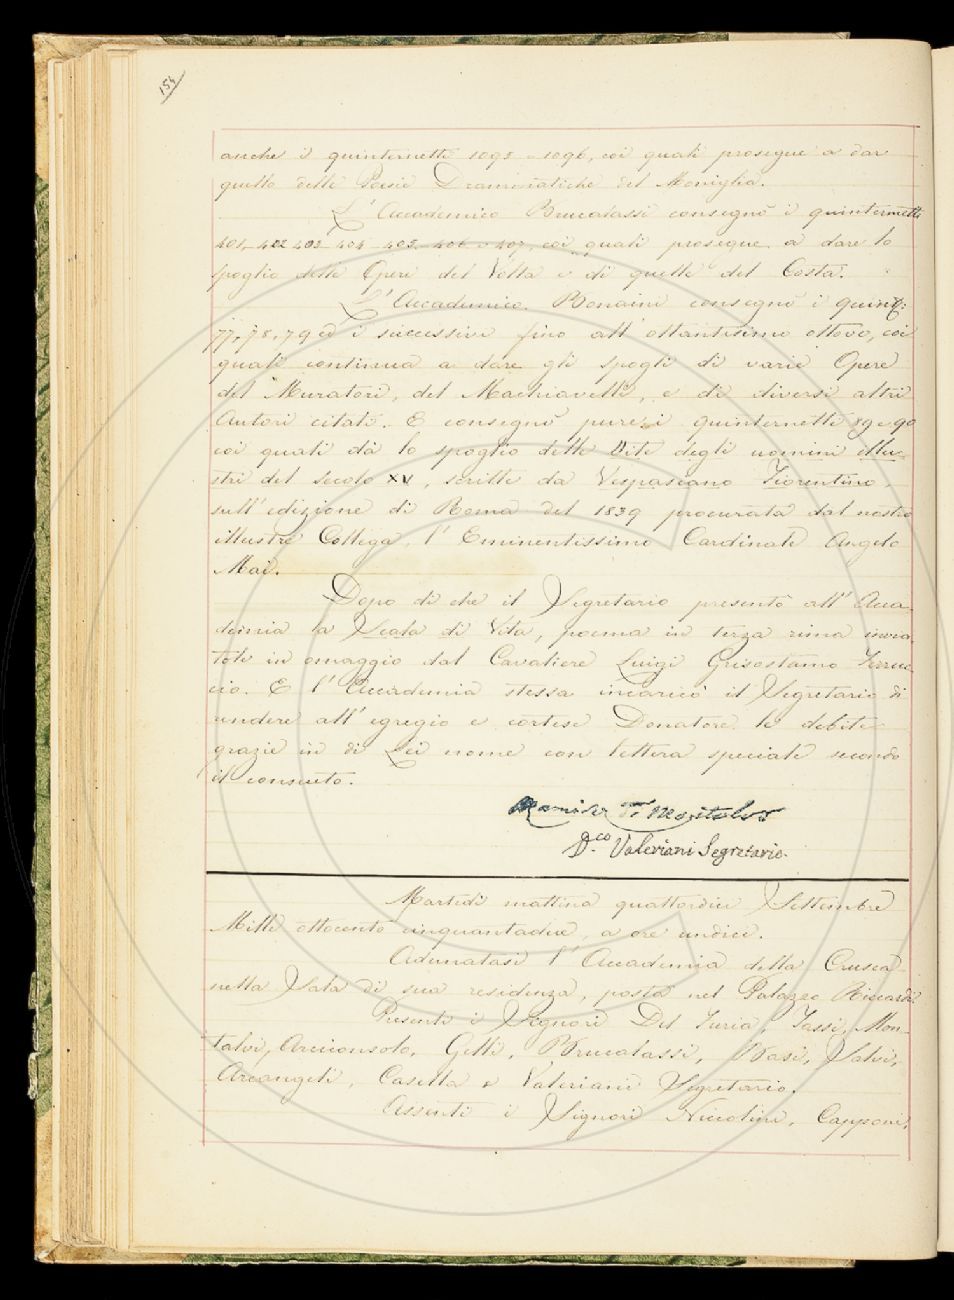 154
anche i quinternetti 1095 e 1096, coi quali prosegue a dar
quello delle Poesie Drammatiche del Moniglia.
L'Accademico Brucalassi consegnò i quinternetti
401, 402 403 404 405 406 e 407, coi quali prosegue a dare lo
spoglio delle Opere del Volta e di quelle del Costa.
L'Accademico Bonaini consegnò i quint:
77, 78, 79 ed i successivi fino all'ottantesimo ottavo, coi
quali continua a dare gli spogli di varie Opere
del Muratori, del Machiavelli, e di diversi altri
Autori citati. E consegnò pure i quinternetti 89 e 90
coi quali dà lo spoglio delle Vite degli uomini illu-
stri del secolo XV, scritte da Vespasiano Fiorentino,
sull'edizione di Roma del 1839 procurata dal nostro
illustre Collega, l'Eminentissimo Cardinale Angelo
Mai.
Dopo di che il Segretario presentò all'Acca-
demia la Scala di Vita, poema in terza rima invia-
tole in omaggio dal Cavaliere Luigi Grisostomo Ferruc-
cio. E l'Accademia stessa incaricò il Segretario di
rendere all'egregio e cortese Donatore le debite
grazie in di Lei nome con lettera speciale secondo
il consueto.
Ramirez Di Montalvo
D.co Valeriani Segretario.
Martedì mattina quattordici Settembre
Mille ottocento cinquantadue, a ore undici.
Adunatasi l'Accademia della Crusca
nella Sala di sua residenza, posta nel Palazzo Riccardi
Presenti i Signori Del Furia, Tassi, Mon-
talvi, Arciconsolo, Gelli, Brucalassi, Masi, Salvi,
Arcangeli, Casella e Valeriani Segretario.
Assenti i Signori Niccolini, Capponi,